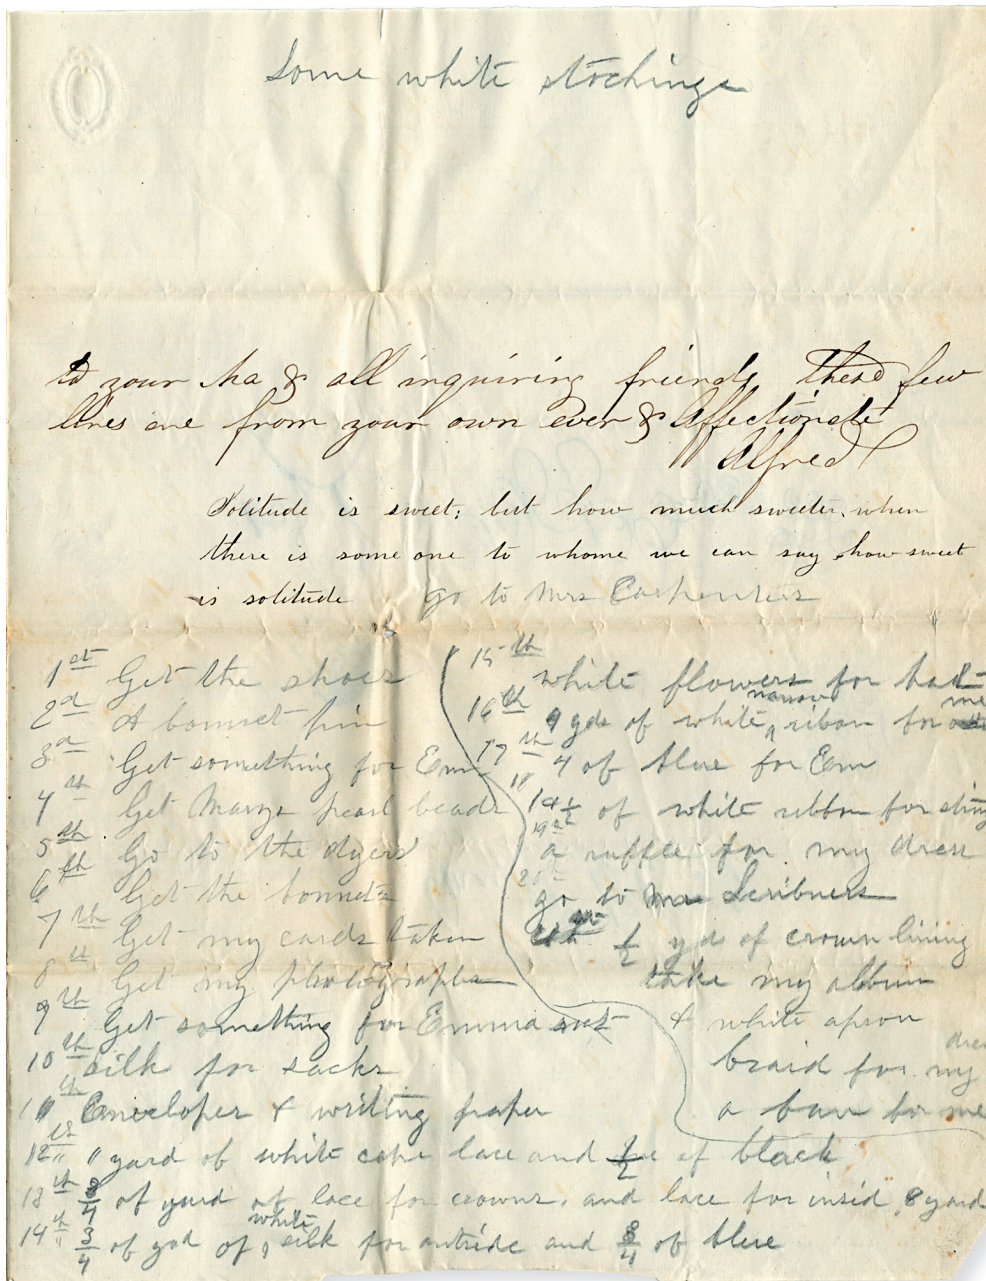 Some white stockings
to your Ma & all inquiring friends these few
lines are from your own ever & Affectionate
Alfred
Solitude is sweet; but how much sweeter, when
there is some one to whome we can say how sweet
is solitude
go to Mrs Carpenters
1st Get the shoes
2d A bonnet pin
3d Get something for Em
4th Get Marys pearl beads
5th Go to the dyers
6th Get the bonnets
7th Get my cards taken
8th Get my photographs
9th Get something for Emma
10th silk for sacks
11th Enveloper & writing paper
12th 1 yard of white cape lace and of black
13th 3/4 of yard of lace for crowns. and lace for insid, 8 yard
14th 3/4 of yad of white silk for outside and 3/4 of blue
15th white flowers for hat
16th 9 yds of white narrow riban for me
17th 4 of blue for Em
18 1 1/2 of white ribbon for string
19th a ruffle for my dress
20th go to Mrs Scribners
1/2 yds of crown lining
take my album
& white apron
braid for my dres
a bow for me